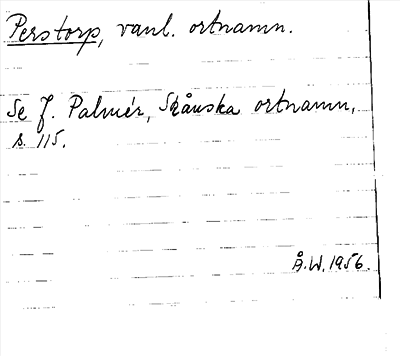 Perstorp, vanl. ortnamn.
Se J. Palmér, Skånska ortnamn,
s. 115.
Å.W. 1956.